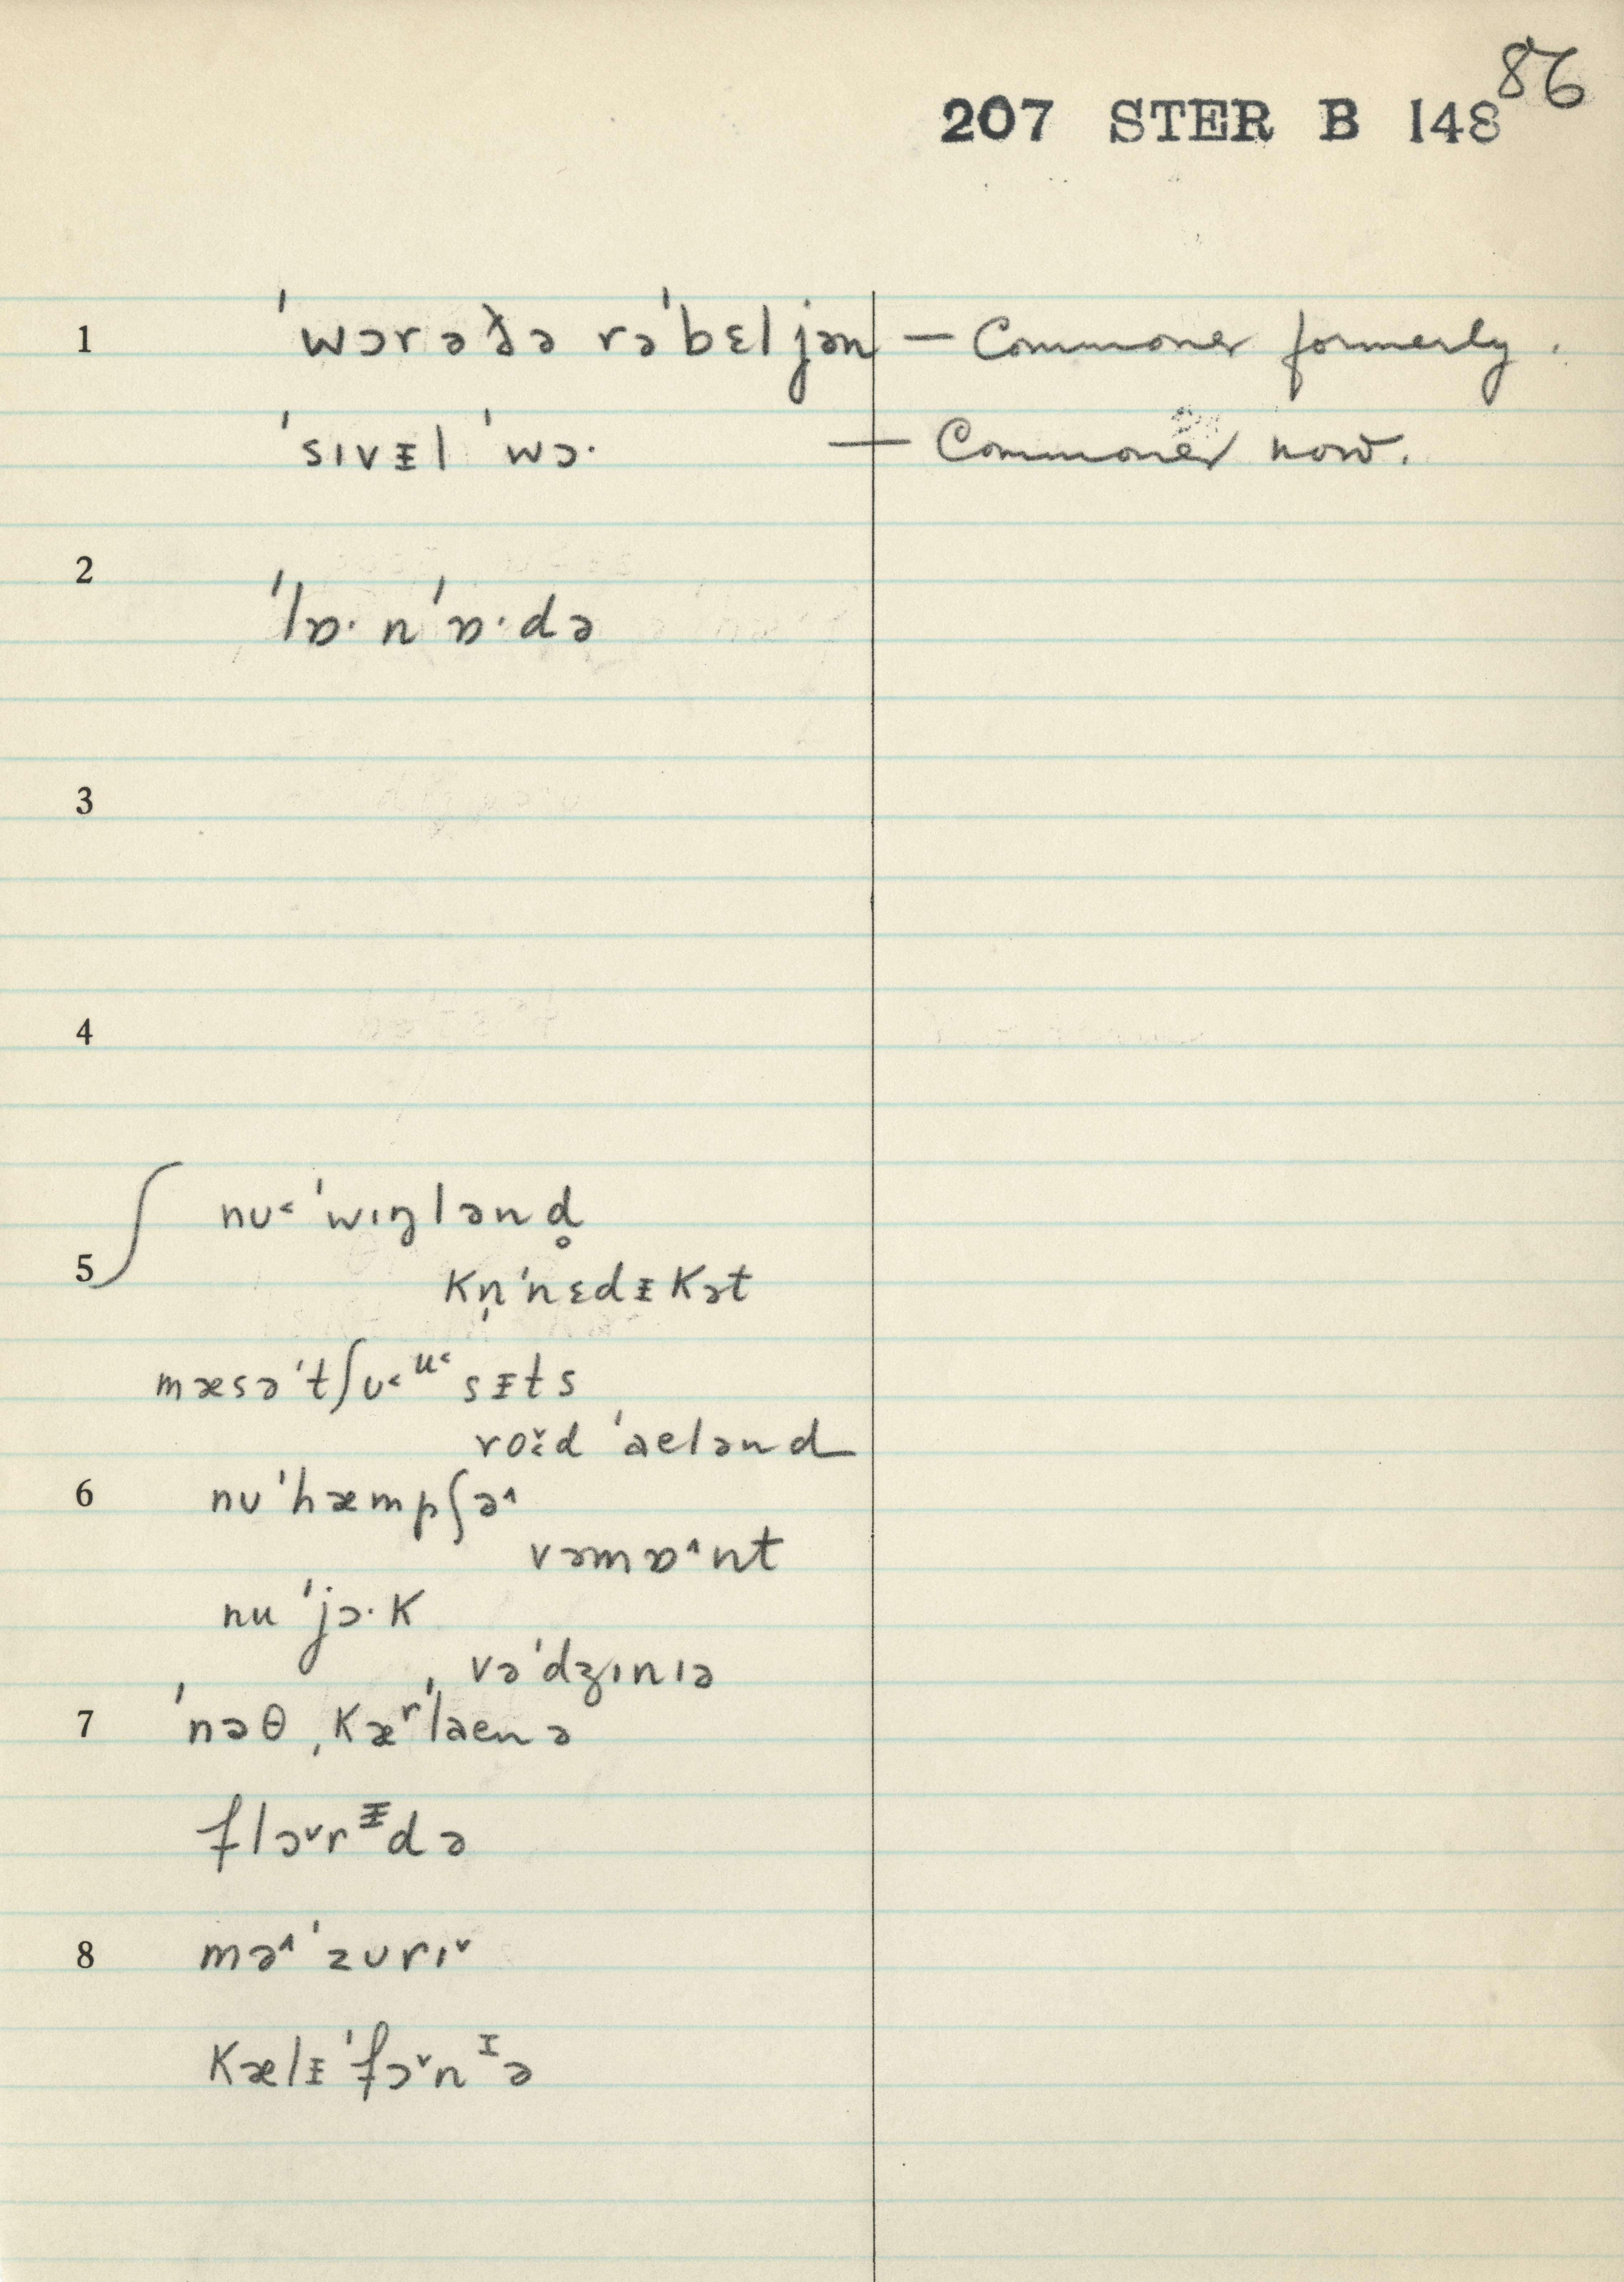 86
207 STER B 148
1 ˈwɔrəðə rəˈbɛljən — Commoner formerly.
ˈsɪvᵻl ˈwɔ· — Commoner now.
2 ˈlɒ·nˈɒ·də
3
4
nʊ˂ ˈwɪŋlənd̥
5 kn̩ˈnɛdᵻkət
mæsəˈtʃʊ˂ᵘ˂sᵻts
ˈaɛlənd
6 nʊˈhæmpʃə˄
vəmɒ˄nt
nu ˈjɔ·k
vəˈdʒɪnɪə
7 ˈnɔθ ˌkæʳˈlaɛnə
flɔ˅rᵻdə
8 mə˄ˈzʊrɪ˅
kælᵻˈfɔ˅nᶦə